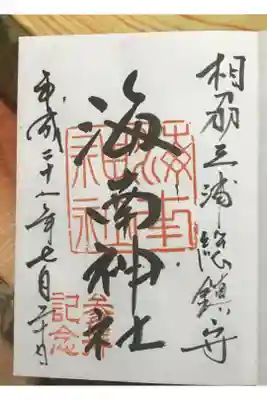 相刕三浦総鎮守
海南神社
海南神社
平成二十八年七月二十日
参拝
記念